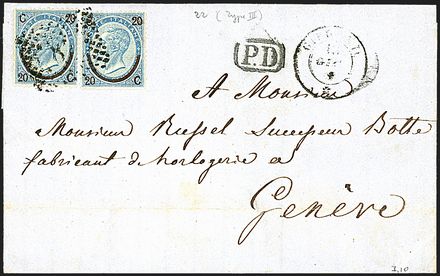 22 (Type III)
C 20 20
20 C
20 20 C
P.D
A Monsieur
Monsieur Russel Successeur Botte
fabricant d'horlogerie a
Genève
3,10